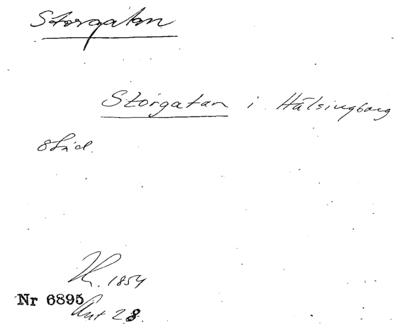 Storgatan
Storgatan i Hälsingborg
stad.
1854
Nr 6895
Ant 28.